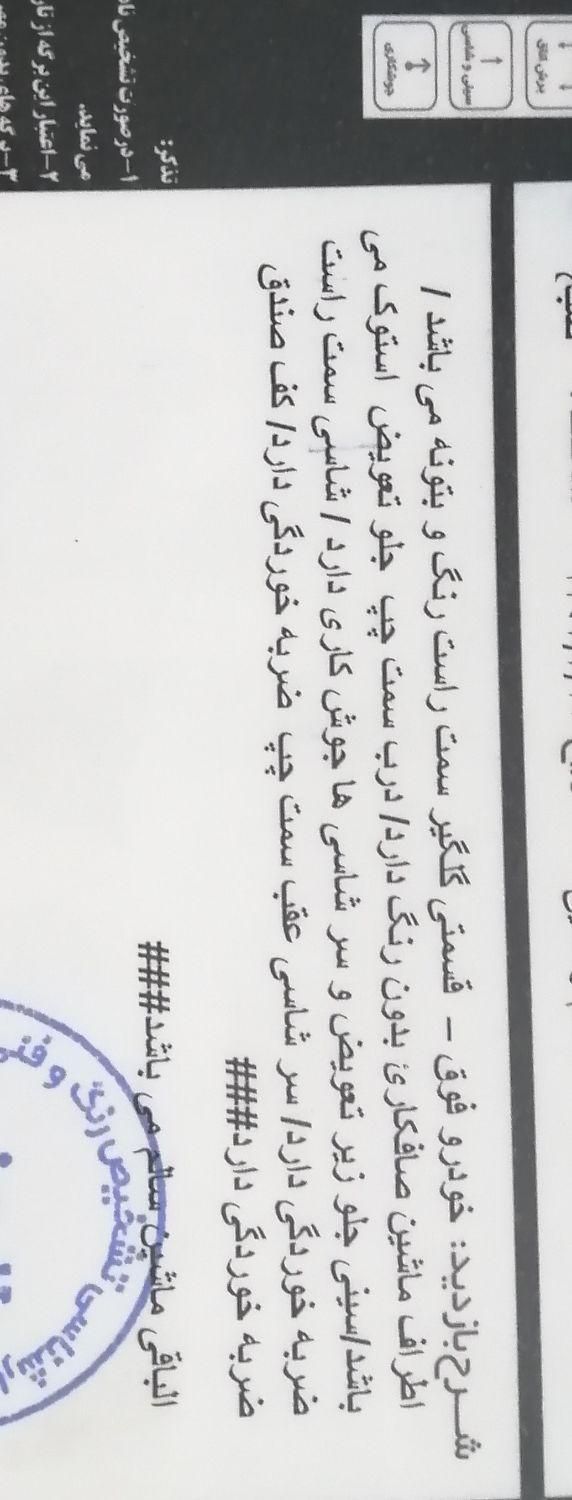 شرح بازدید: خودرو فوق - قسمتی گلگیر سمت راست رنگ و بتونه می باشد /
اطراف ماشین صافکاری بدون رنگ دارد/ درب سمت چپ جلو تعویض استوک می
باشد/سینی جلو زیر تعویض و سر شاسی ها جوش کاری دارد / شاسی سمت راست
ضربه خوردگی دارد/ سر شاسی عقب سمت چپ ضربه خوردگی دارد/ کف صندق
ضربه خوردگی دارد###
الباقی ماشین سالم می باشد###
تشخیص رنگ و
جوشکاری
سینی و شاسی
برش اتاق
تذکر:
۱- در صورت تشخیص
می نماید.
۲- اعتبار این برگه از